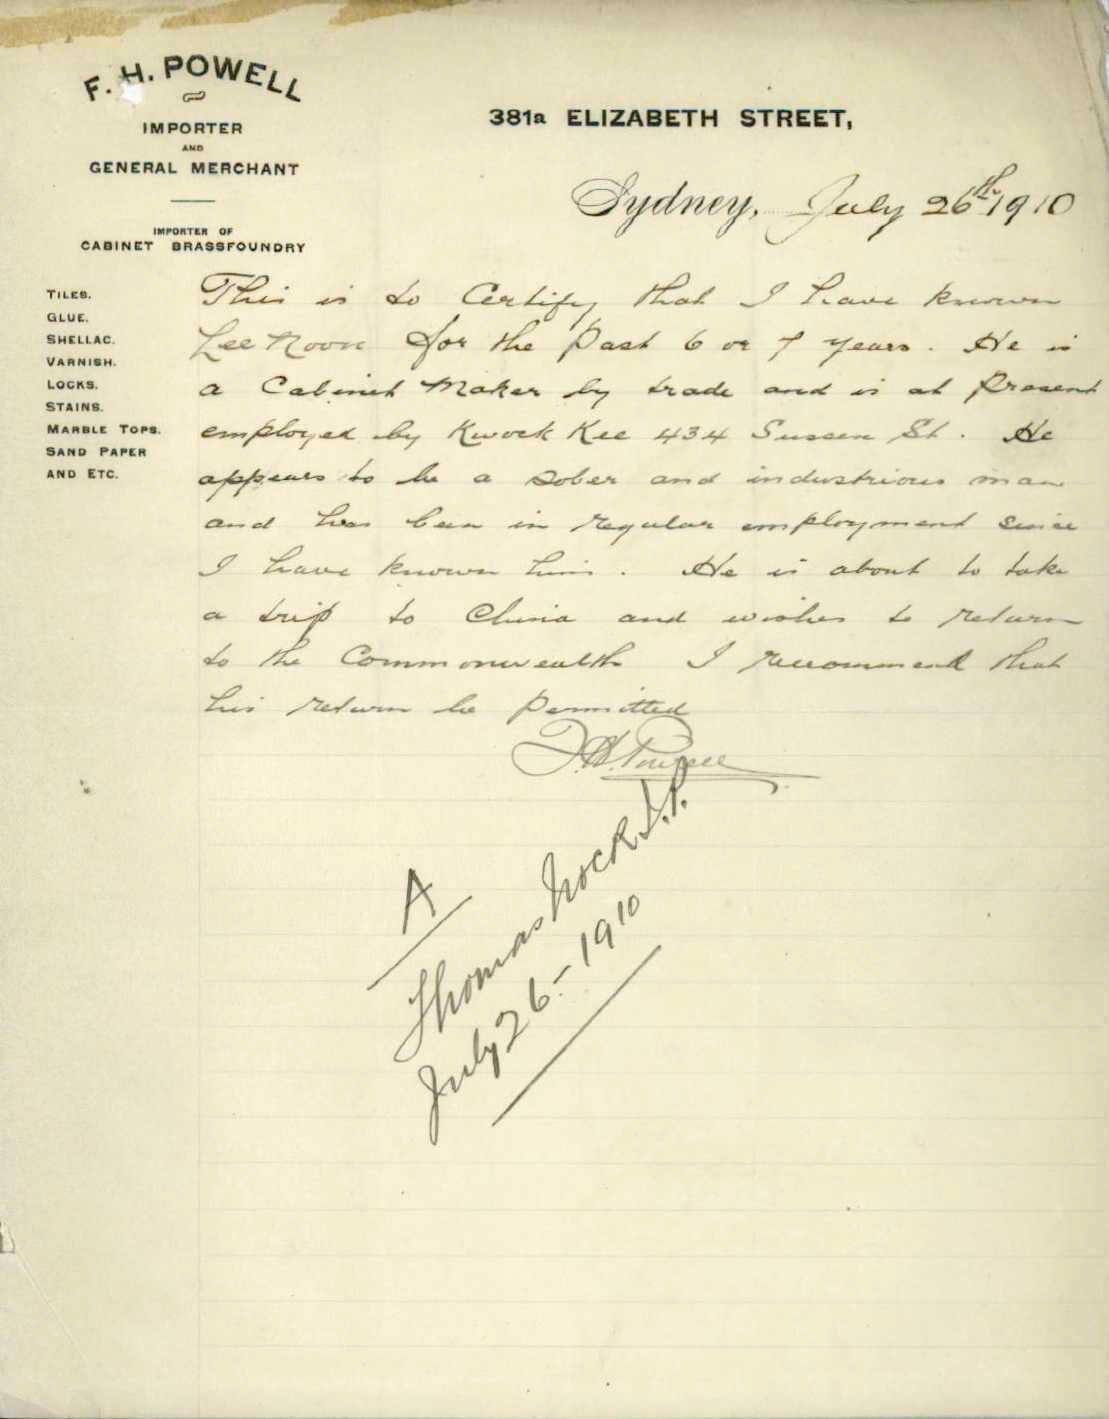 F. H. POWELL
IMPORTER
AND
GENERAL MERCHANT
IMPORTER OF
CABINET BRASSFOUNDRY
TILES.
GLUE.
SHELLAC.
VARNISH.
LOCKS.
STAINS.
MARBLE TOPS.
SAND PAPER
AND ETC.
381a ELIZABETH STREET,
Sydney, July 26th 1910
This is to Certify that I have known
Lee Noon for the Past 6 or 7 years. He is
a Cabinet Maker by trade and is at Present
employed by Kwock Kee 434 Sussex St. He
appears to be a sober and industrious man
and has been in regular employment since
I have known him. He is about to take
a trip to China and wishes to return
to the Commonwealth I recommend that
his return be permitted
F.H. Powell
A
Thomas Nock J.P.
July 26 - 1910